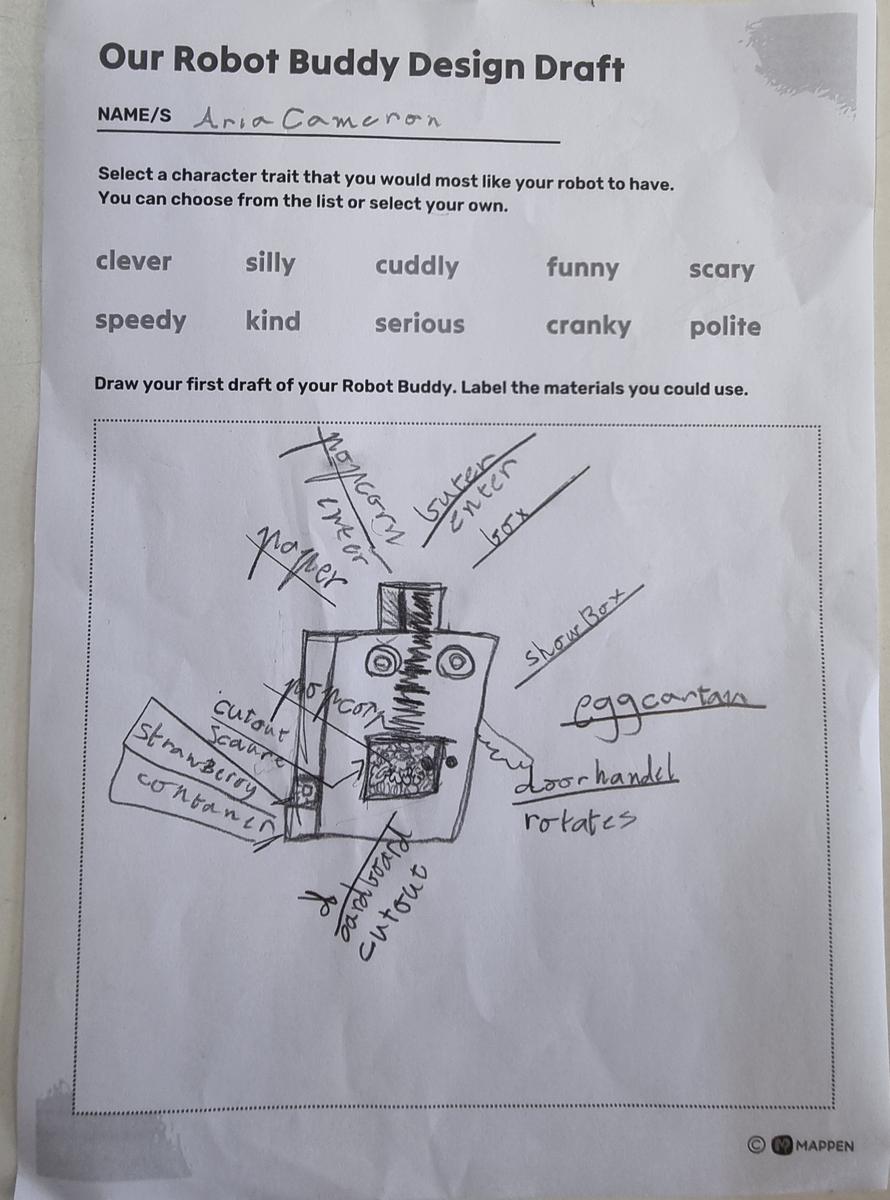 Our Robot Buddy Design Draft
NAME/S Aria Cameron
Select a character trait that you would most like your robot to have.
You can choose from the list or select your own.
clever silly cuddly funny scary
speedy kind serious cranky polite
Draw your first draft of your Robot Buddy. Label the materials you could use.
popcorn
enter
buter
enter
box
paper
showBox
popcorn
cutout
scaure
eggcartan
strawBerry
contaner
doorhandel
rotates
cardboard
cutout
© MAPPEN